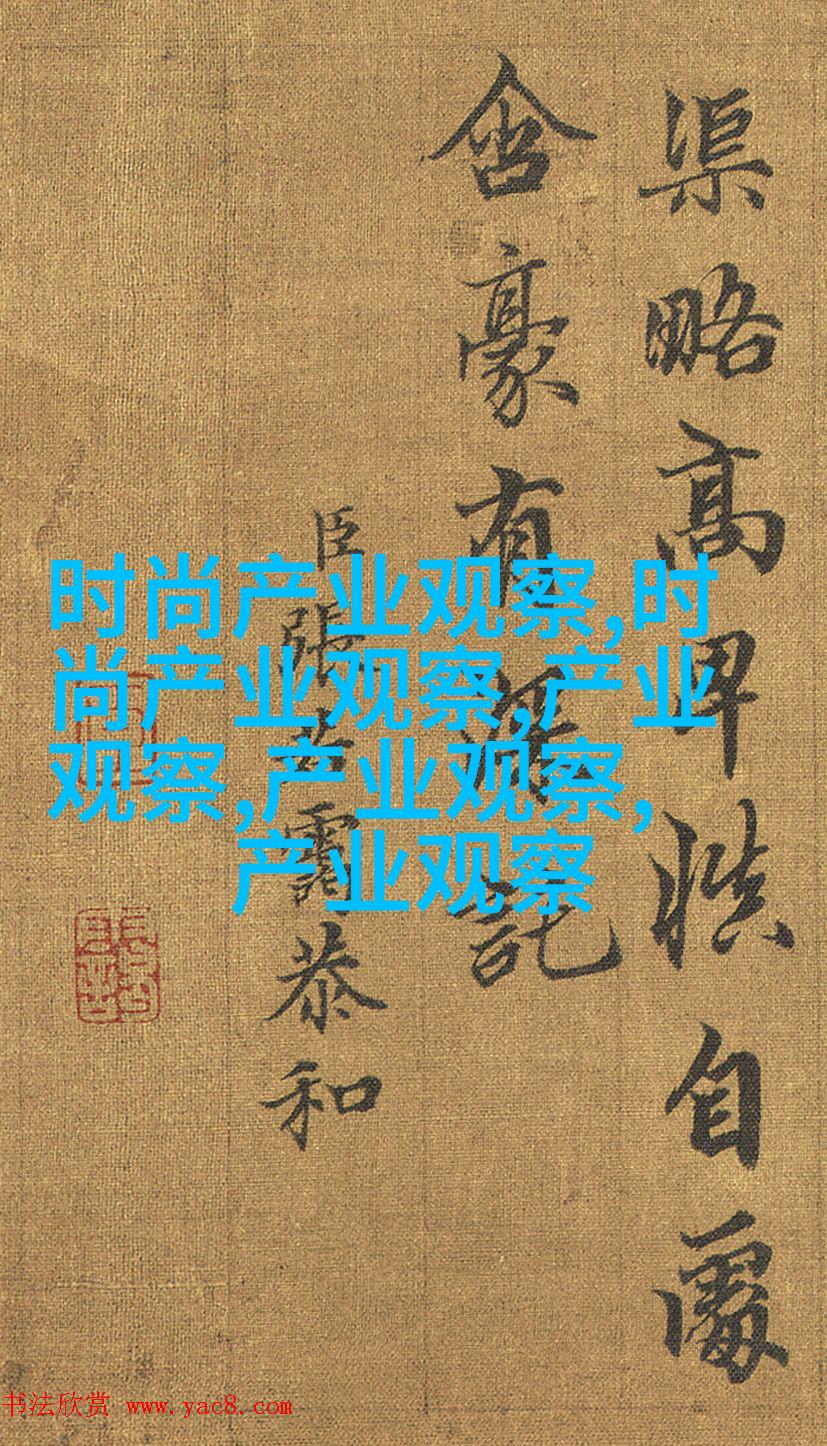 渠略高卑慎自處
含豪有深託
臣張若靄恭和
时尚产业观察,时
尚产业观察,产业
观察,产业观察,
产业观察
书法欣赏 www.yac8.com